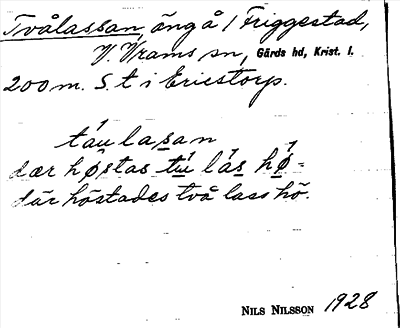 Tvålassan, äng å / Friggestad,
V. Vrams sn, Gärds hd, Krist. l.
200 m. S. t i Ericstorp.
táu lasan
dær høstas tú lás hǿ =
där höstades två lass hö.
NILS NILSSON 1928